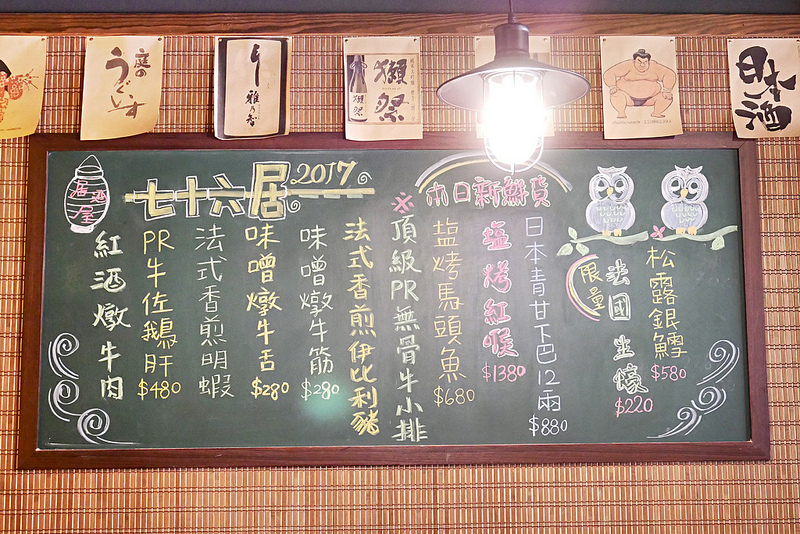 庭のうぐいす
雅乃智
獺祭
獺祭
日本酒
居酒屋
七十六居 2017
本日新鮮貨
松露銀鱈 $580
限量
法國生蠔 $220
日本青甘下巴12兩 $880
塩烤紅喉 $1380
塩烤馬頭魚 $680
※頂級PR無骨牛小排
法式香煎伊比利豬
味噌燉牛筋 $280
味噌燉牛舌 $280
法式香煎明蝦
PR牛佐鵝肝 $480
紅酒燉牛肉